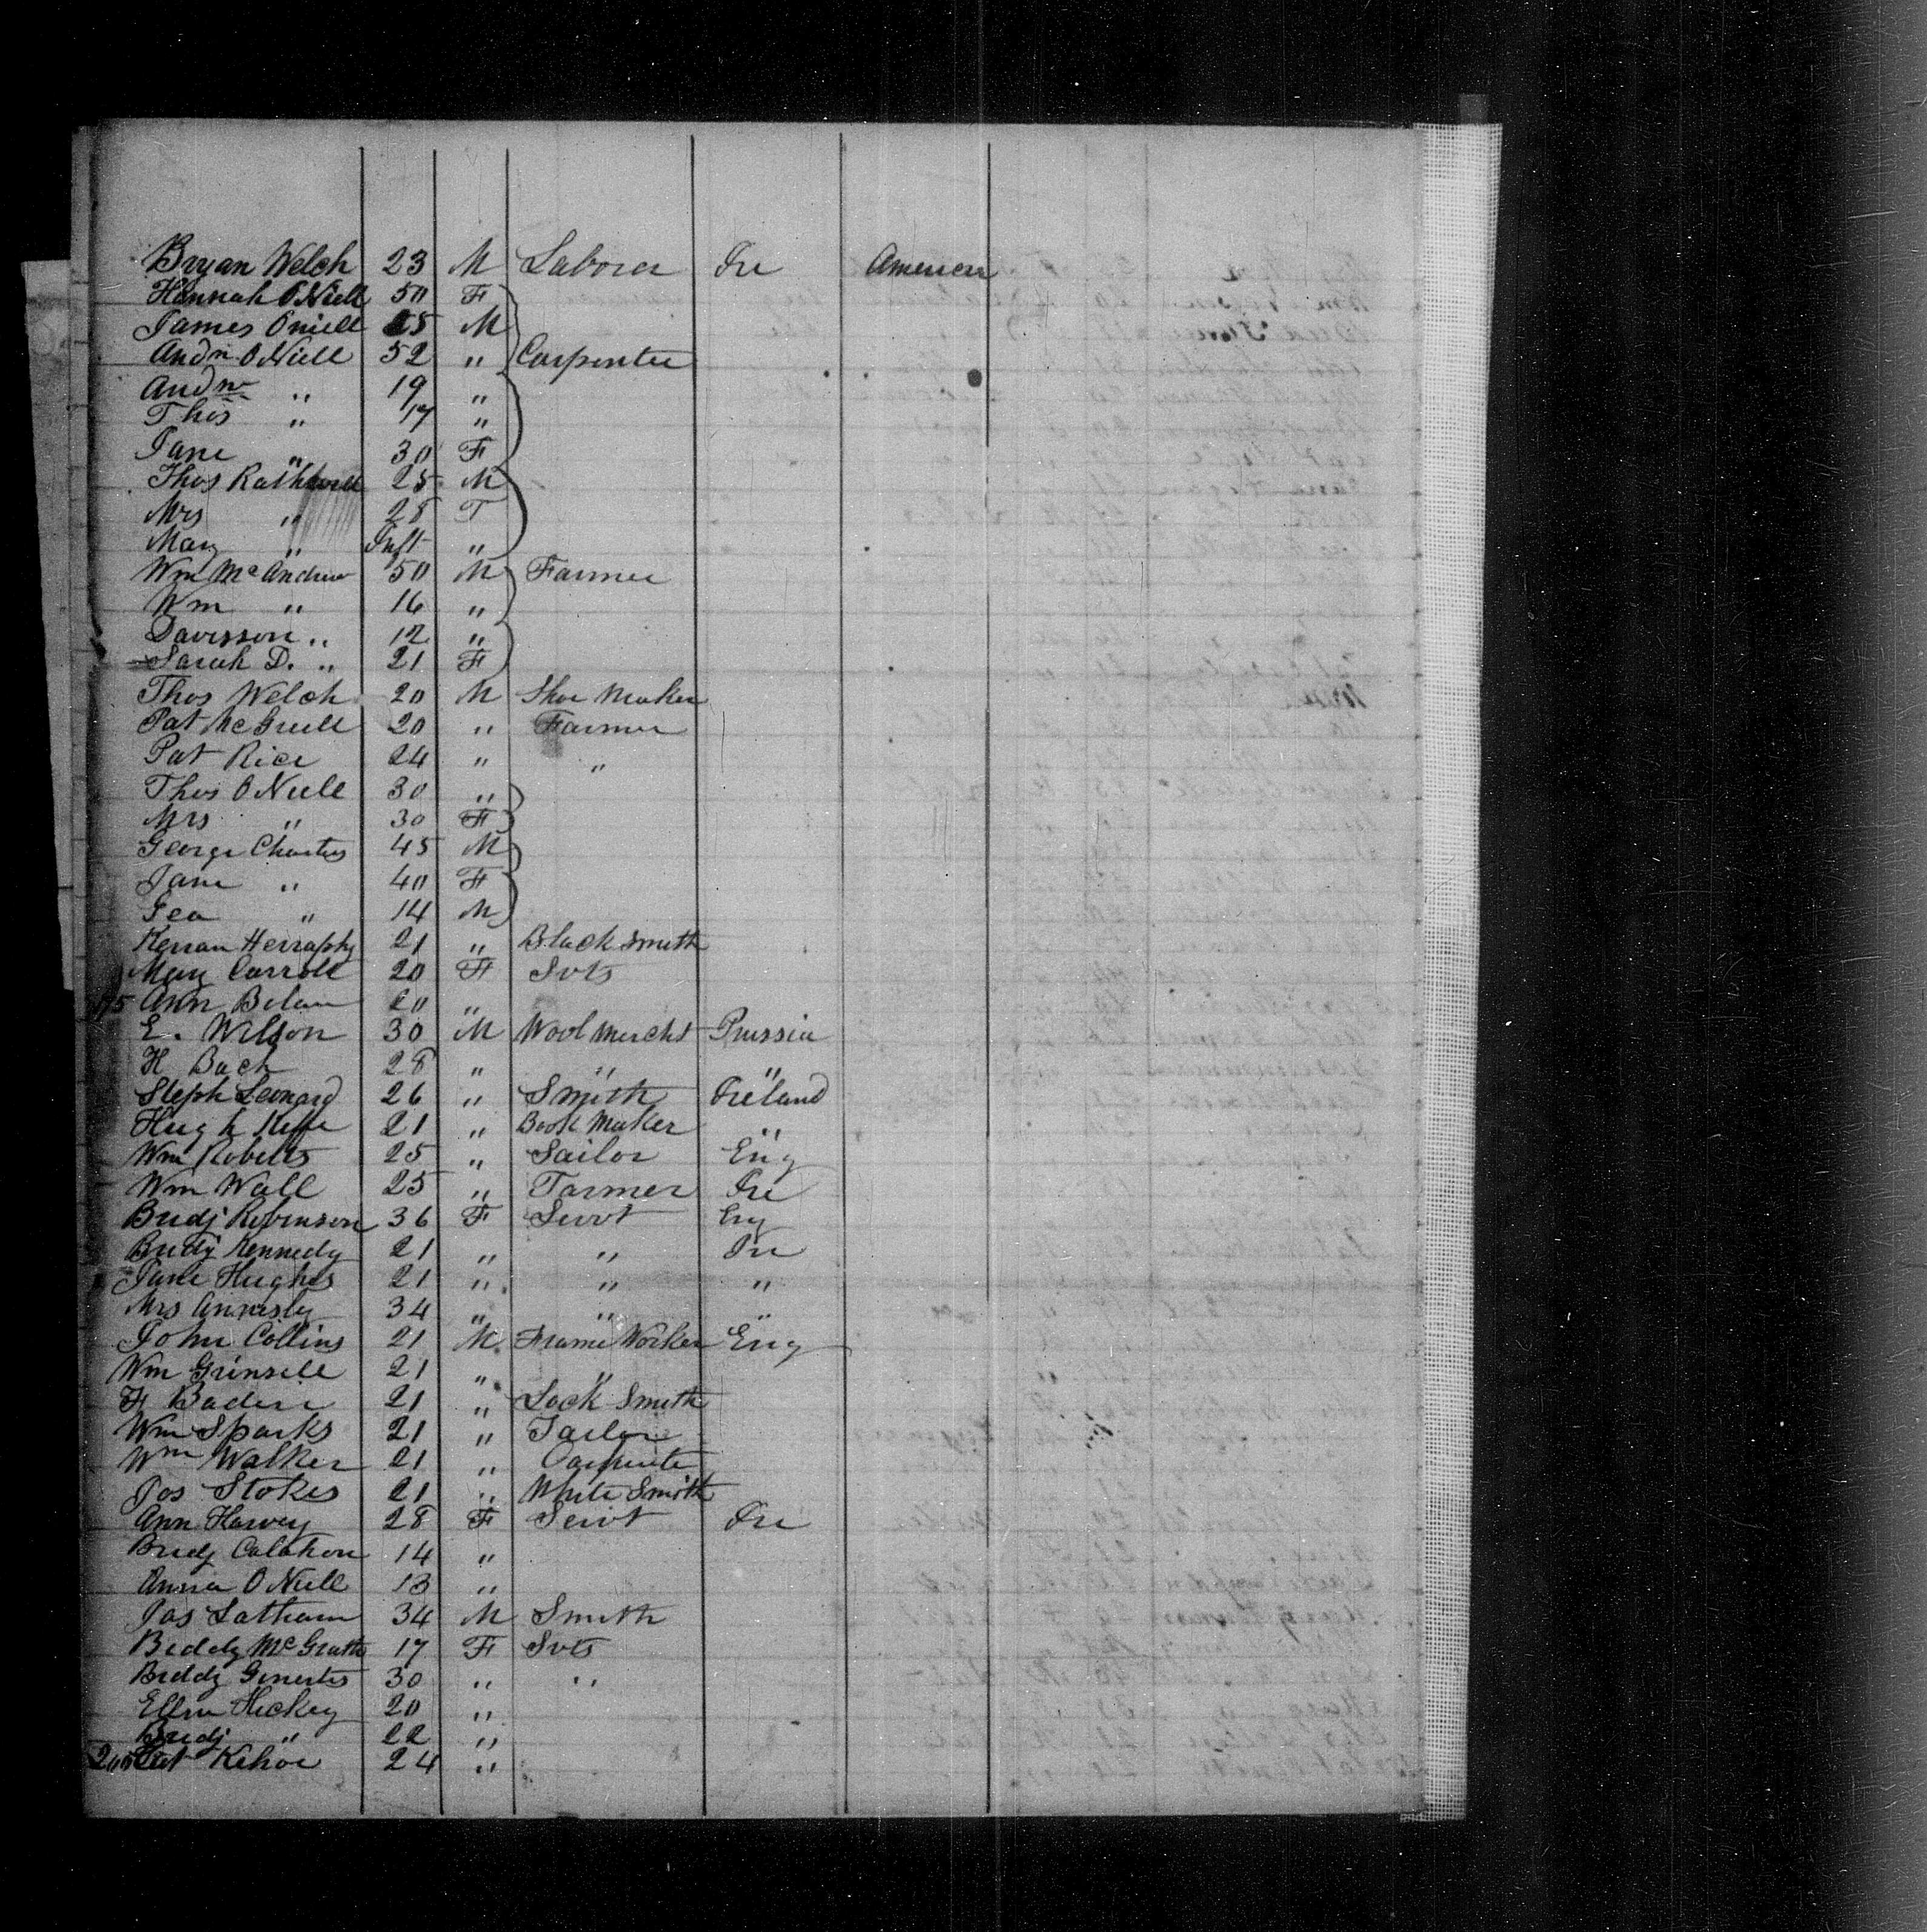 Bryan Welch 23 M Laborer Ire America
Hannah O Niell 50 F
James Oniell 25 M
Andw O Niell 52 " Carpenter
Andw " 19 "
Thos " 17 "
Jane " 30 F
Thos 25 M
Mrs " 28 F
Mary " Inft "
Wm McAndrew 50 M Farmer
Wm " 16 "
Davisson " 12 "
Sarah D. " 21 F
Thos Welch 20 M Shoe Maker
Pat 20 " Farmer
Pat Rice 24 " "
Thos O Niell 30 "
Mrs " 30 F
George Charters 45 M
Jane " 40 F
Geo " 14 M
Kerran Herraphy 21 " Black Smith
Mary Carroll 20 F Svts
Ann 20 "
E. Wilson 30 M Wool Mercht Prussia
H Bach 28 " " "
Steph Leonard 26 " Smith Ireland
Hugh Keffe 21 " Book Maker "
Wm Roberts 25 " Sailor Eng
Wm Wall 25 " Farmer Ire
Bridj Robinson 36 F Servt Eng
Bridj Kennedy 21 " " Ire
Jane Hughes 21 " " "
Mrs Annesly 34 " " "
John Collins 21 M Frame Worker Eng
Wm Grinsell 21 " "
F Baden 21 " Lock Smith
Wm Sparks 21 " Tailor
Wm Walker 21 " Carpenter
Jos Stokes 21 " White Smith
Ann Harvey 28 F Servt Ire
Bridj Calahon 14 "
Anna O Niell 13 "
Jas Latham 34 M Smith
Biddy McGrath 17 F Svts
Biddy 30 " "
Ellen Hickey 20 "
Bridj " 22 "
200 Pat Kehoe 24 "